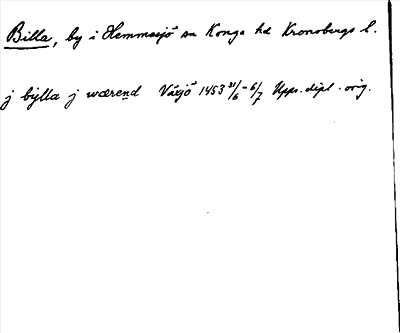 Billa, by i Hemmesjö sn Konga hd Kronobergs l.
j bylla j wærend Växjö 1453 31/6 - 6/7 Upps. dipl. orig.